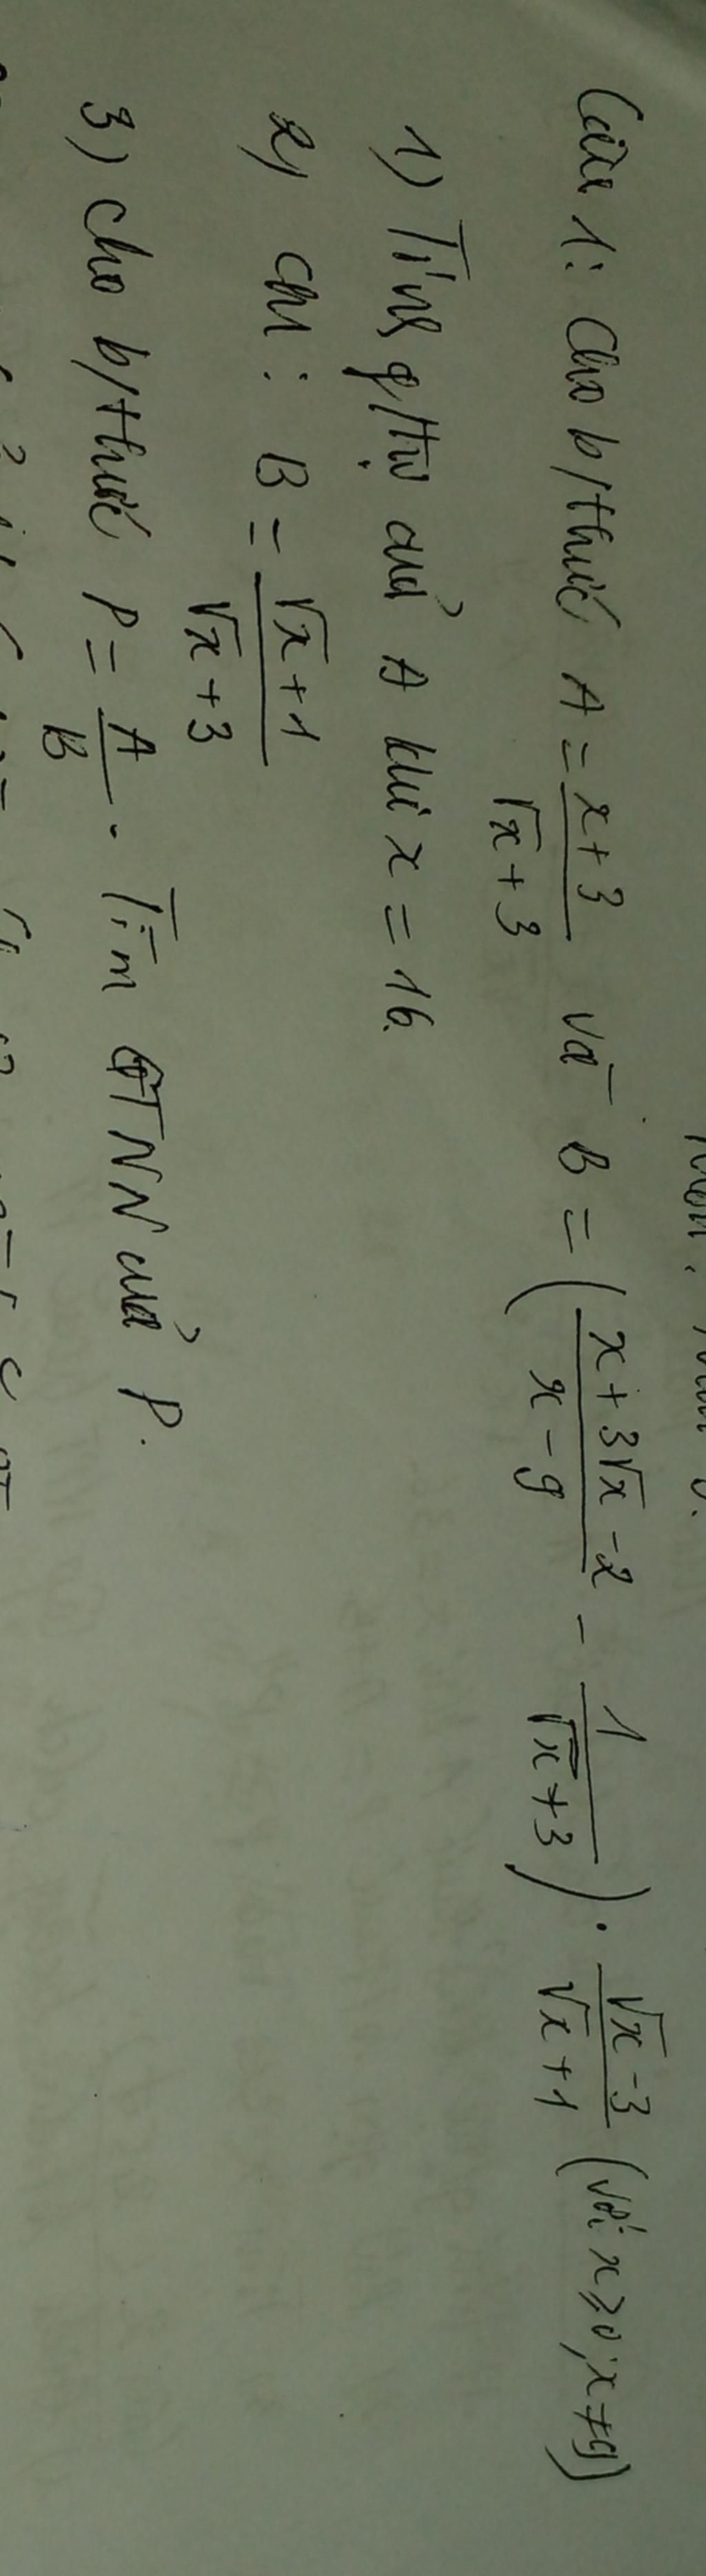 Câu 1: Cho b/thức A = \frac{x+3}{\sqrt{x}+3} và B = (\frac{x+3\sqrt{x}-2}{x-9} - \frac{1}{\sqrt{x}+3}) \cdot \frac{\sqrt{x}-3}{\sqrt{x}+1} (với x ≥ 0; x ≠ 9)
1) Tính g/trị của A khi x = 16.
2) CM: B = \frac{\sqrt{x}+1}{\sqrt{x}+3}
3) Cho b/thức P = \frac{A}{B}. Tìm GTNN của P.